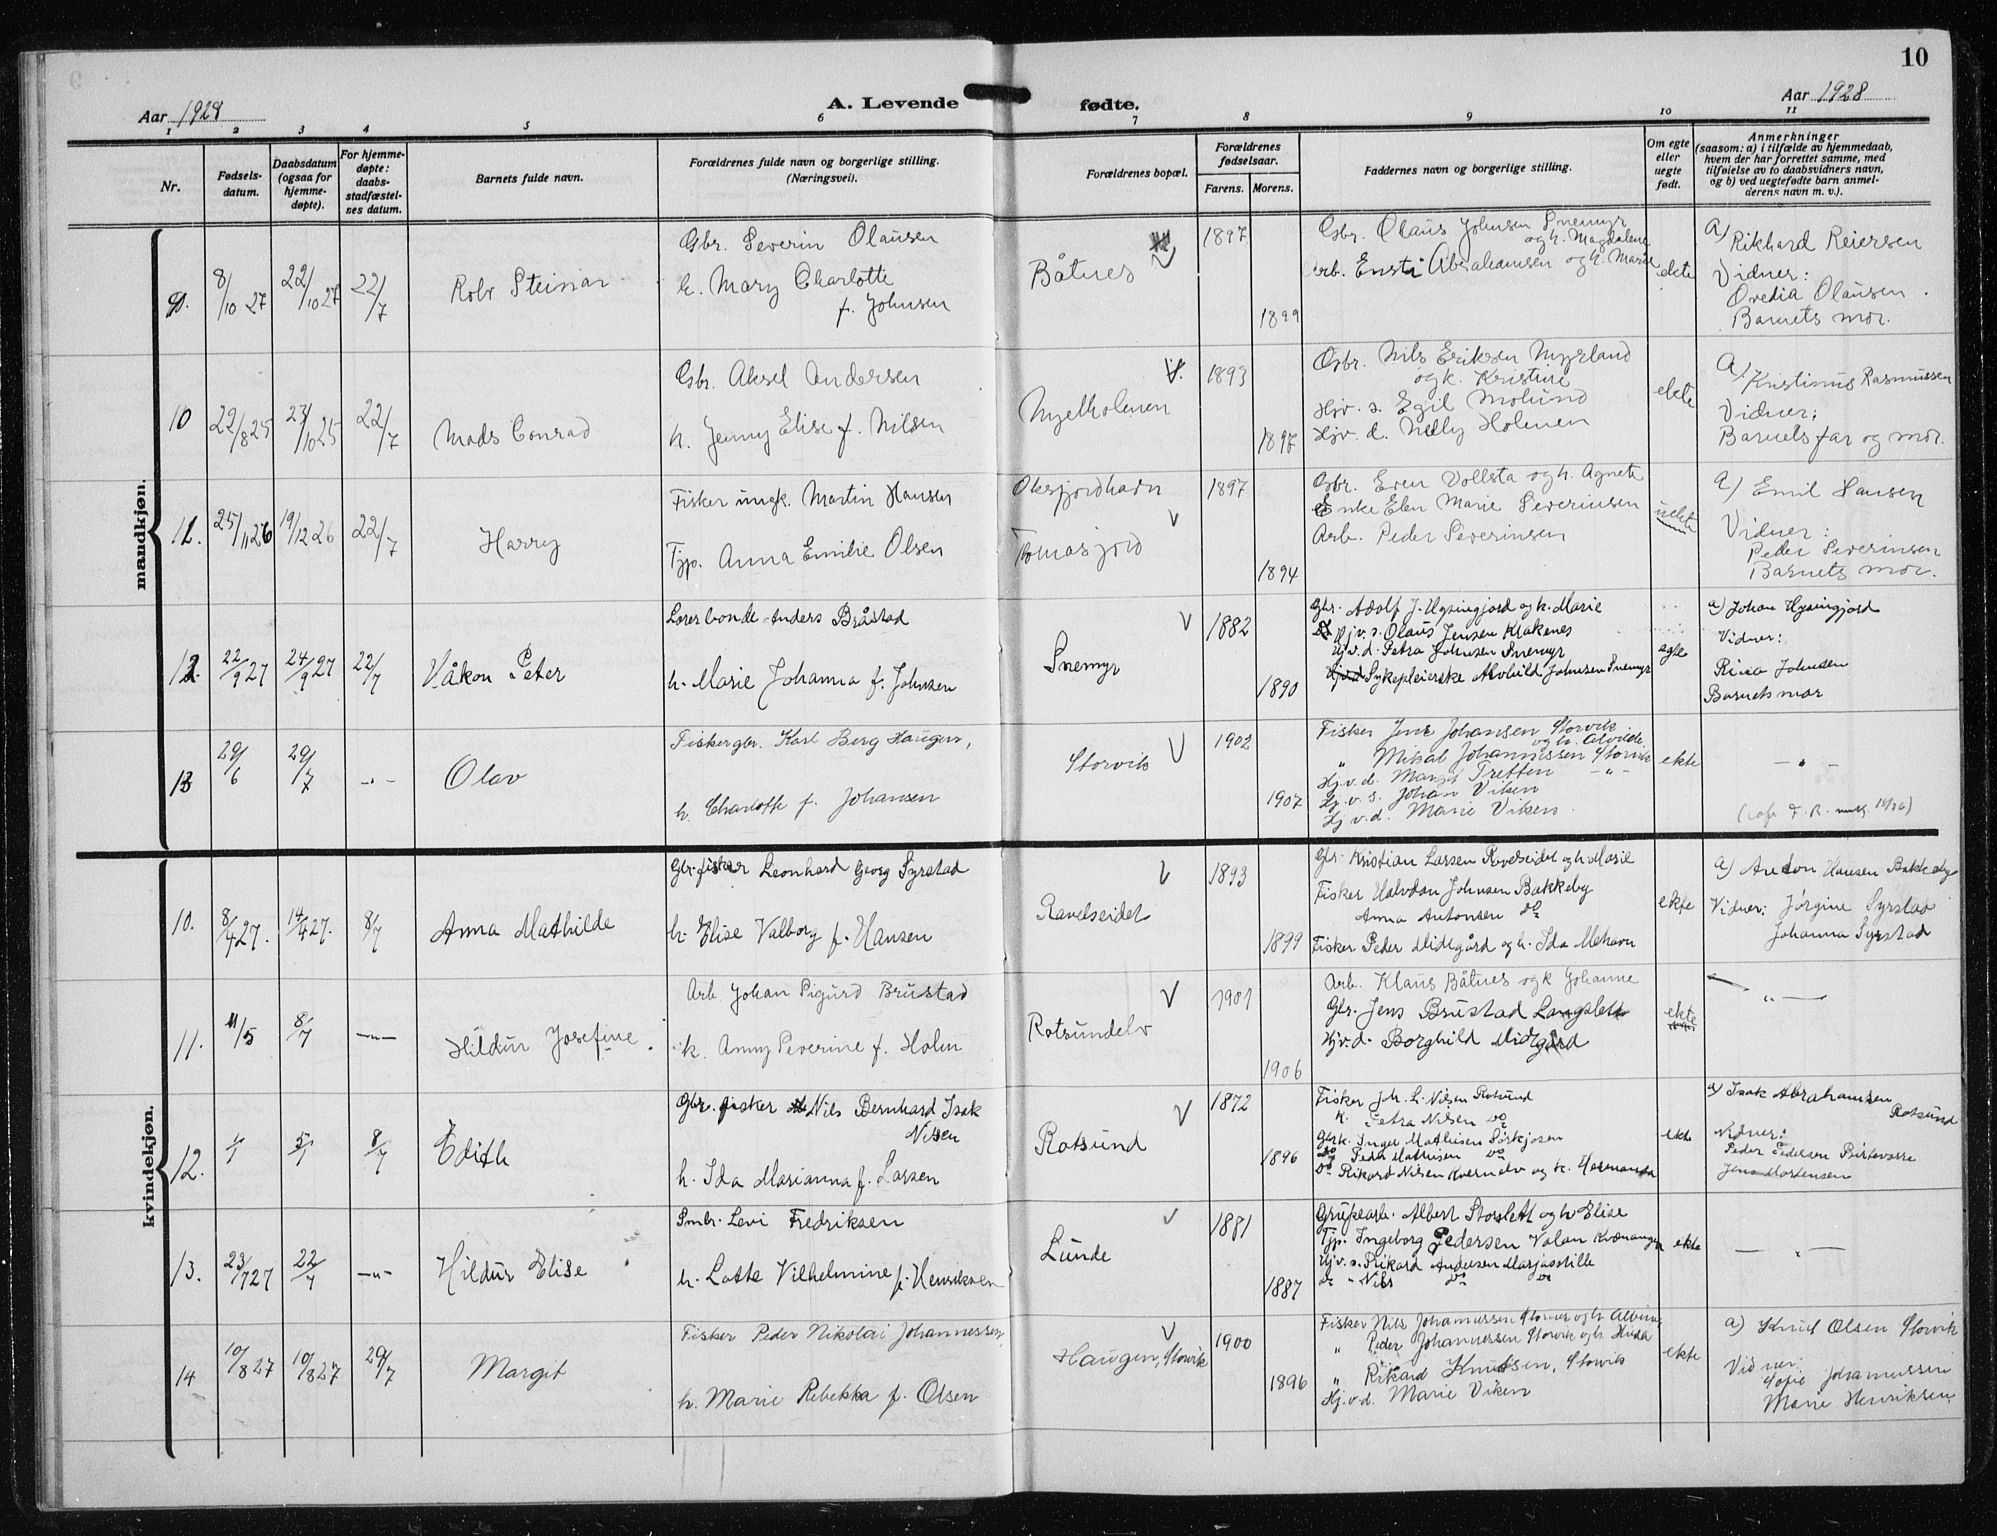 10
Aar 1928
A. Levende fødte.
Aar 1928
1 2 3 4 5 6 7 8 9 10 11
Nr.
Fødsels-
datum.
Daabsdatum
(ogsaa for
hjemme-
døpte).
For hjemme-
døpte:
daabs-
stadfæstel-
ses datum.
Barnets fulde navn.
Forældrenes fulde navn og borgerlige stilling.
(Næringsvei).
Forældrenes bopæl.
Forældrenes
fødselsaar.
Farens. Morens.
Faddernes navn og borgerlige stilling.
Om egte
eller
uegte
født.
Anmerkninger
(saasom: a) i tilfælde av hjemmedaab,
hvem der har forrettet samme, med
tilføielse av to daabsvidners navn,
og b) ved uegtefødte barn anmel-
derens navn m. v.).
mandkjøn.
9. 8/10 27 22/10 27 22/7
Rolv Steinar
Gbr. Severin Olaüsen
h. Mary Charlotte
f. Johnsen
Båtnes
1897
1899
Gbr. Olaüs Johnsen Snemyr
og h. Magdalene
Arb. Abrahamsen og h. Marie
ekte
a) Rikhard Reiersen
Vidner:
Ovedia Olaüsen.
Barnets mor.
10 22/8 25 23/10 25 22/7
Mads Conrad
Gbr. Aksel Andersen
h. Jenny Elise f. Nilsen
1893
1897
Gbr. Nils Eriksen Myrland
og k. Kristine
Hjv. s. Egil Molund
Hjv. d. Nelly Holmen
ekte
a) Kristinus Rasmussen
Vidner:
Barnets far og mor.
11. 25/11 26 19/12 26 22/7
Harry
Fisker ungk. Martin Hansen
Tjp. Anna Emilie Olsen
Oksfjordhavn
Tomasjord
1897
1894
Gbr. Even Vollstad og h. Agnete
Enke Elen Marie Severinsen
Arb. Peder Severinsen
uekte
a) Emil Hansen
Vidner:
Peder Severinsen
Barnets mor.
12. 22/9 27 24/9 27 22/7
Håkon Peter
Lærer bonde Anders Bråstad
h. Marie Johanna f. Johnsen
Snemyr
1882
1890
Gbr. Adolf J. Hysingjord og k. Marie
Hjv. s. Olaüs Jensen Klakenes
Hjv. d. Petra Johnsen Snemyr
Sykepleierske Alvhild Johnsen Snemyr
egte
a) Johan Hysingjord
Vidner:
Johnsen
Barnets mor
13 29/6 29/7 -„-
Olav
Fisker gbr. Karl Berg Haugen,
h. Charlotte f. Johansen
Storvik
1902
1907
Fisker Jens Johansen Storvik
og h. Alvilde
„ Mikal Johannessen Storvik
Hj. v. d. Margit Tretten -„-
Hj. v. s. Johan Viken
Hj. v. d. Marie Viken.
ekte
-„-
kvindekjøn.
10. 8/4 27. 14/4 27. 8/7
Anna Mathilde
Gbr. fisker Leonhard Georg Syrstad
h. Elise Valborg f. Hansen
Ravelseidet
1893
1899
Gbr. Kristian Larsen Ravelseidet og h Marie
Fisker Halvdan Johnsen Bakkeby
Anna Antonsen do
Fisker Peder Midtgård og h. Ida Mehavn
ekte
a) Anton Hansen Bakkeby
Vidner: Jørgine Syrstad
Johanna Syrstad
11. 11/5 8/7 -„-
Hildur Josefine.
Arb. Johan Sigurd Brustad
k. Anny Severine f. Holm
Rotsundelv
1901
1906
Arb. Klaus Båtnes og k Johanne
Gbr. Jens Brustad Langslett
Hjv. d. Borghild Midtgård
ekte
-„-
12. 1/1 5/1 8/7
Edith
Gbr. fisker Nils Bernhard Isak
Nilsen
h. Ida Marianna f. Larsen
Rotsund
1872
1896
Fisker Joh. L. Nilsen Rotsund
K. Petra Nilsen do
Gbrk. Inger Mathisen Sørkjosen
do Peder Mathisen do
do Rikard Nilsen Kvernelv og k. Hermanda
ekte
a) Isak Abrahamsen
Rotsund
Vidner:
Peder Pedersen Birtevarre
Jens Mortensen
13. 23/7 27 22/7 -„-
Hildur Elise
Smbr. Levi Fredriksen
h. Lotte Vilhelmine f. Henriksen
Lunde
1881
1887
Grubearb. Albert Storslett og h Elise
Tjp. Ingeborg Pedersen Valan Kvænangen
Hjv. s. Rikard Andersen Marjasstille
do „ Nils do do
ekte
-„-
14 10/8 27 10/8 27 29/7
Margit
Fisker Peder Nikolai Johannessen,
h. Marie Rebekka f. Olsen
Haugen, Storvik
1900
1896
Fisker Nils Johannessen Storvik og h. Albine
„ Peder Johannessen Storvik og h. Hilda
„ Rikard Knudsen, Storvik
Hj. v. d. Marie Viken
ekte
a) Knut Olsen Storvik
Vidner:
Sofie Johannessen
Marie Henriksen.